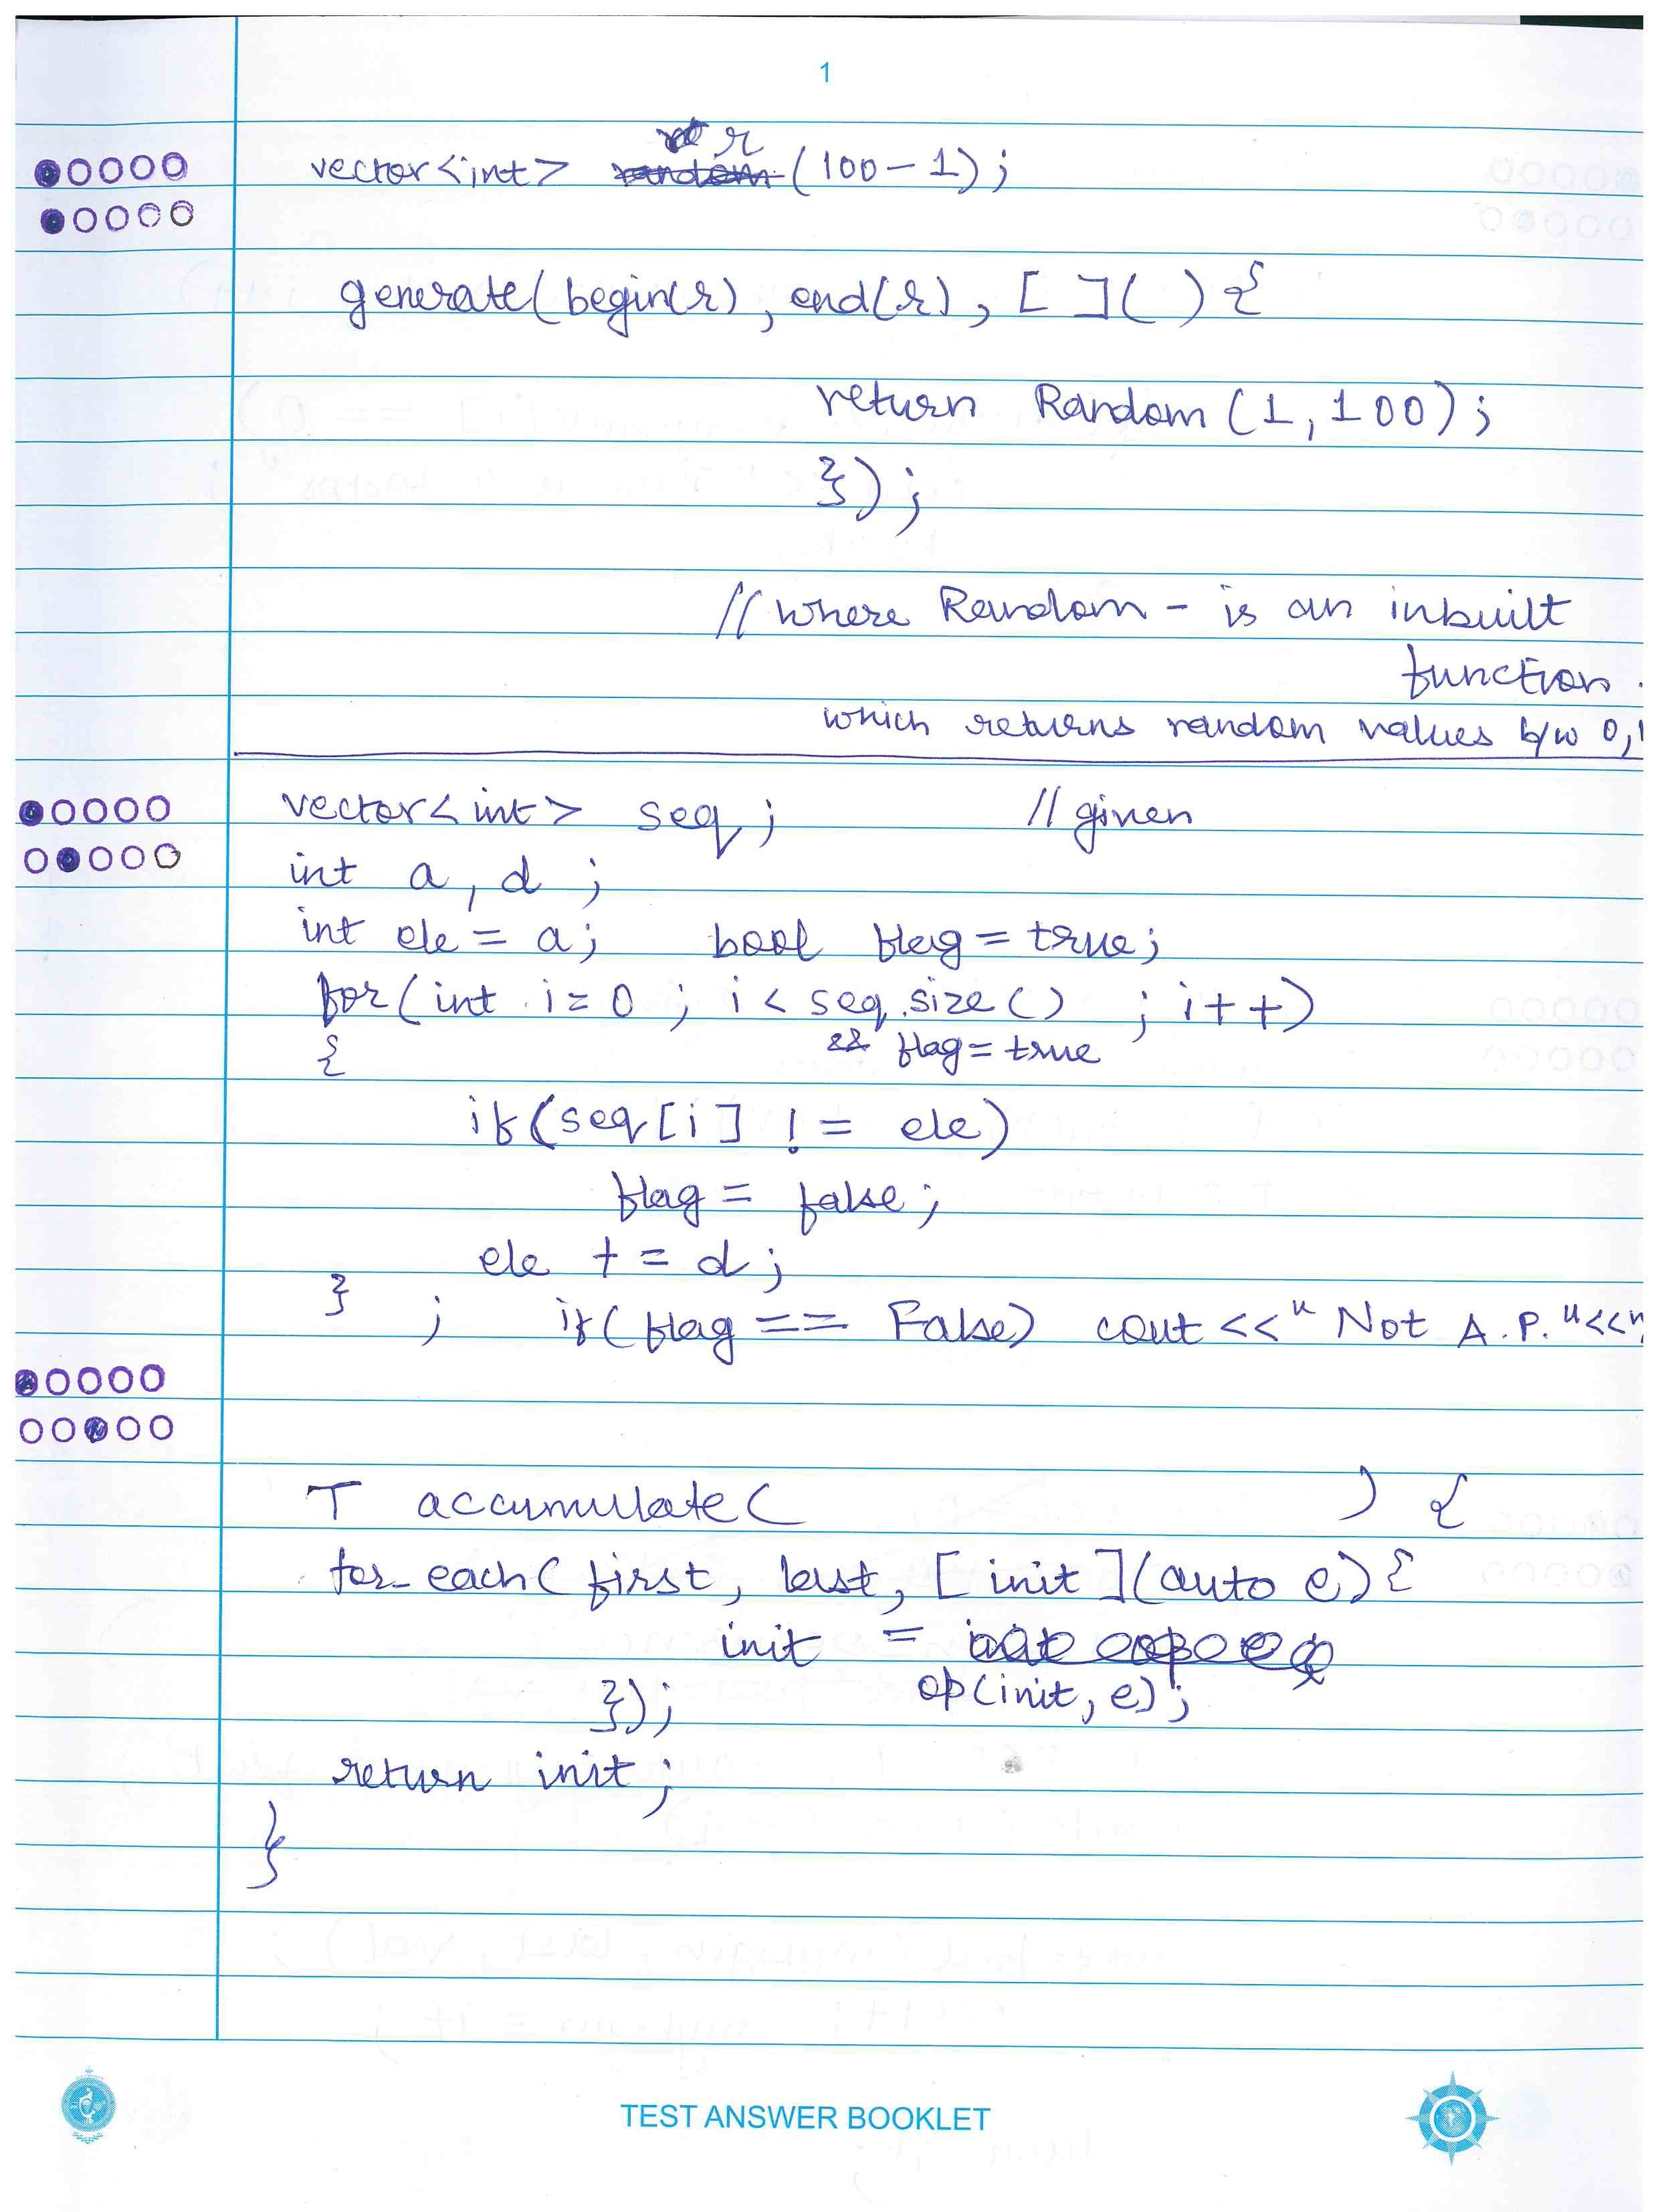 1
vector<int> r (100-1);
generate(begin(r), end(r), [ ]( ) {
return Random (1, 100);
});
// where Random - is an inbuilt
function.
which returns random values b/w 0,1
vector<int> seq; // given
int a, d ;
int ele = a; bool flag = true;
for(int i=0 ; i < seq.size() ; i++)
{ && flag = true
if(seq[i] != ele)
flag = false;
ele += d;
} ; if(flag == False) cout <<" Not A.P."<<
T accumulate( ) {
for_each(first, last, [init](auto e){
init =
op(init, e);
});
return init;
}
TEST ANSWER BOOKLET